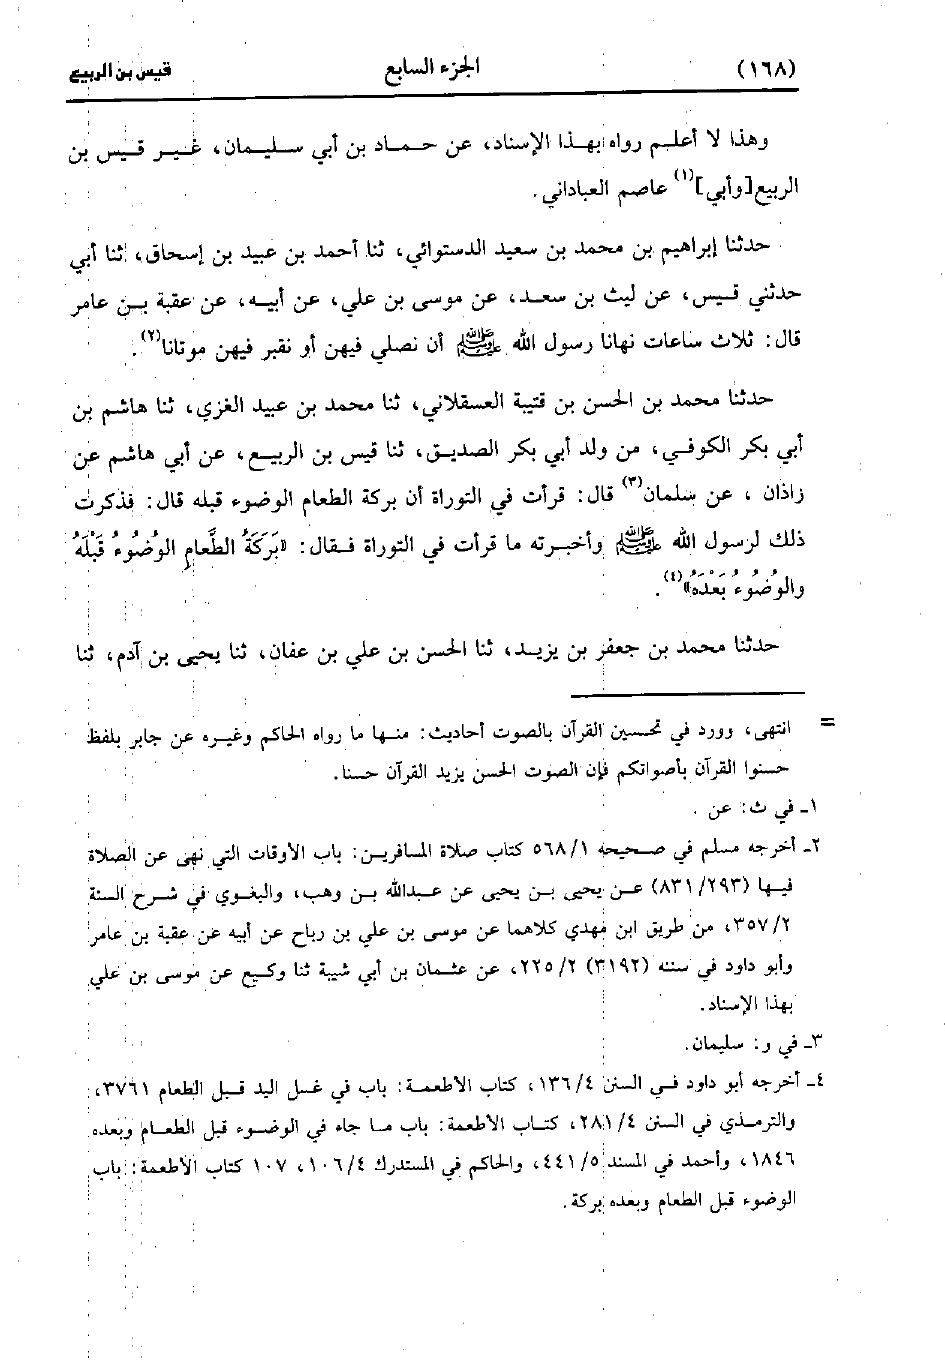 (١٦٨) الجزء السابع قيس بن الربيع
وهذا لا أعلم رواه بهذا الإسناد، عن حماد بن أبي سليمان، غير قيس بن
الربيع[وأبي](١) عاصم العباداني.
حدثنا إبراهيم بن محمد بن سعيد الدستوائي، ثنا أحمد بن عبيد بن إسحاق، ثنا أبي
حدثني قيس، عن ليث بن سعد، عن موسى بن علي، عن أبيه، عن عقبة بن عامر
قال: ثلاث ساعات نهانا رسول الله ﷺ أن نصلي فيهن أو نقبر فيهن موتانا(٢).
حدثنا محمد بن الحسن بن قتيبة العسقلاني، ثنا محمد بن عبيد الغزي، ثنا هاشم بن
أبي بكر الكوفي، من ولد أبي بكر الصديق، ثنا قيس بن الربيع، عن أبي هاشم عن
زاذان ، عن سلمان(٣) قال: قرأت في التوراة أن بركة الطعام الوضوء قبله قال: فذكرت
ذلك لرسول الله ﷺ وأخبرته ما قرأت في التوراة فقال: «بَرَكَةُ الطَّعامِ الوُضُوءُ قَبْلَهُ
والوُضُوءُ بَعْدَهُ»(٤).
حدثنا محمد بن جعفر بن يزيد، ثنا الحسن بن علي بن عفان، ثنا يحيى بن آدم، ثنا
= انتهى، وورد في تحسين القرآن بالصوت أحاديث: منها ما رواه الحاكم وغيره عن جابر بلفظ
حسنوا القرآن بأصواتكم فإن الصوت الحسن يزيد القرآن حسنا.
١ـ في ث: عن .
٢ـ أخرجه مسلم في صحيحه ٥٦٨/١ كتاب صلاة المسافرين: باب الأوقات التي نهى عن الصلاة
فيها (٨٣١/٢٩٣) عن يحيى بن يحيى عن عبدالله بن وهب، والبغوي في شرح السنة
٣٥٧/٢، من طريق ابن مهدي كلاهما عن موسى بن علي بن رباح عن أبيه عن عقبة بن عامر
وأبو داود في سننه (٣١٩٢) ٢٢٥/٢، عن عثمان بن أبي شيبة ثنا وكيع عن موسى بن علي
بهذا الإسناد.
٣ـ في و: سليمان.
٤ـ أخرجه أبو داود في السنن ١٣٦/٤، كتاب الأطعمة: باب في غسل اليد قبل الطعام ٣٧٦١،
والترمذي في السنن ٢٨١/٤، كتاب الأطعمة: باب ما جاء في الوضوء قبل الطعام وبعده
١٨٤٦، وأحمد في المسند ٤٤١/٥، والحاكم في المستدرك ١٠٦/٤، ١٠٧ كتاب الأطعمة: باب
الوضوء قبل الطعام وبعده بركة.